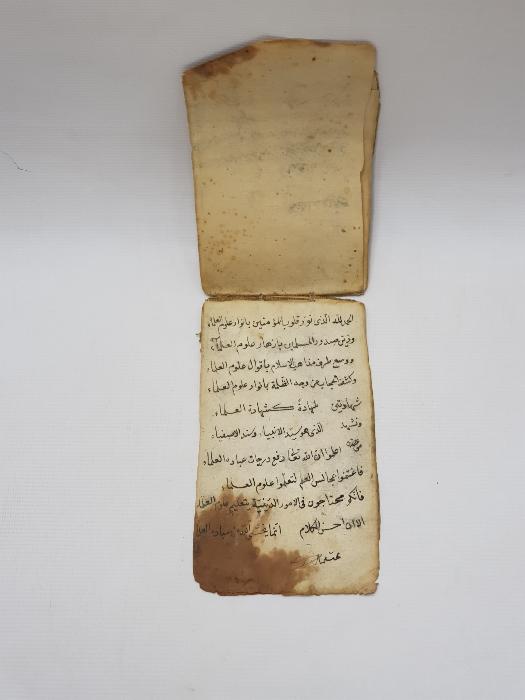 الحمد لله الذى نور قلوب المؤمنين بانوار علوم العلماء
وزين صدور المسلمين بازهار علوم العلماء
ووسع طرف مذاهب الاسلام باقوال علوم العلماء
وكشف الحجاب عن وجه الظلمة بانوار علوم العلماء
شهادتين شهادة كشهادة العلماء
ونشهد الذى هو سيد الانبياء وسند الاصفياء
اعلموا ان الله تعالى رفع درجات عباده العلماء
فاغتنموا مجالس العلم لتعلموا علوم العلماء
فانكم محتاجون فى الامور الدينية بتعليم علوم العلماء
الا ان احسن الكلام انما يخشى الله من عباده العلماء